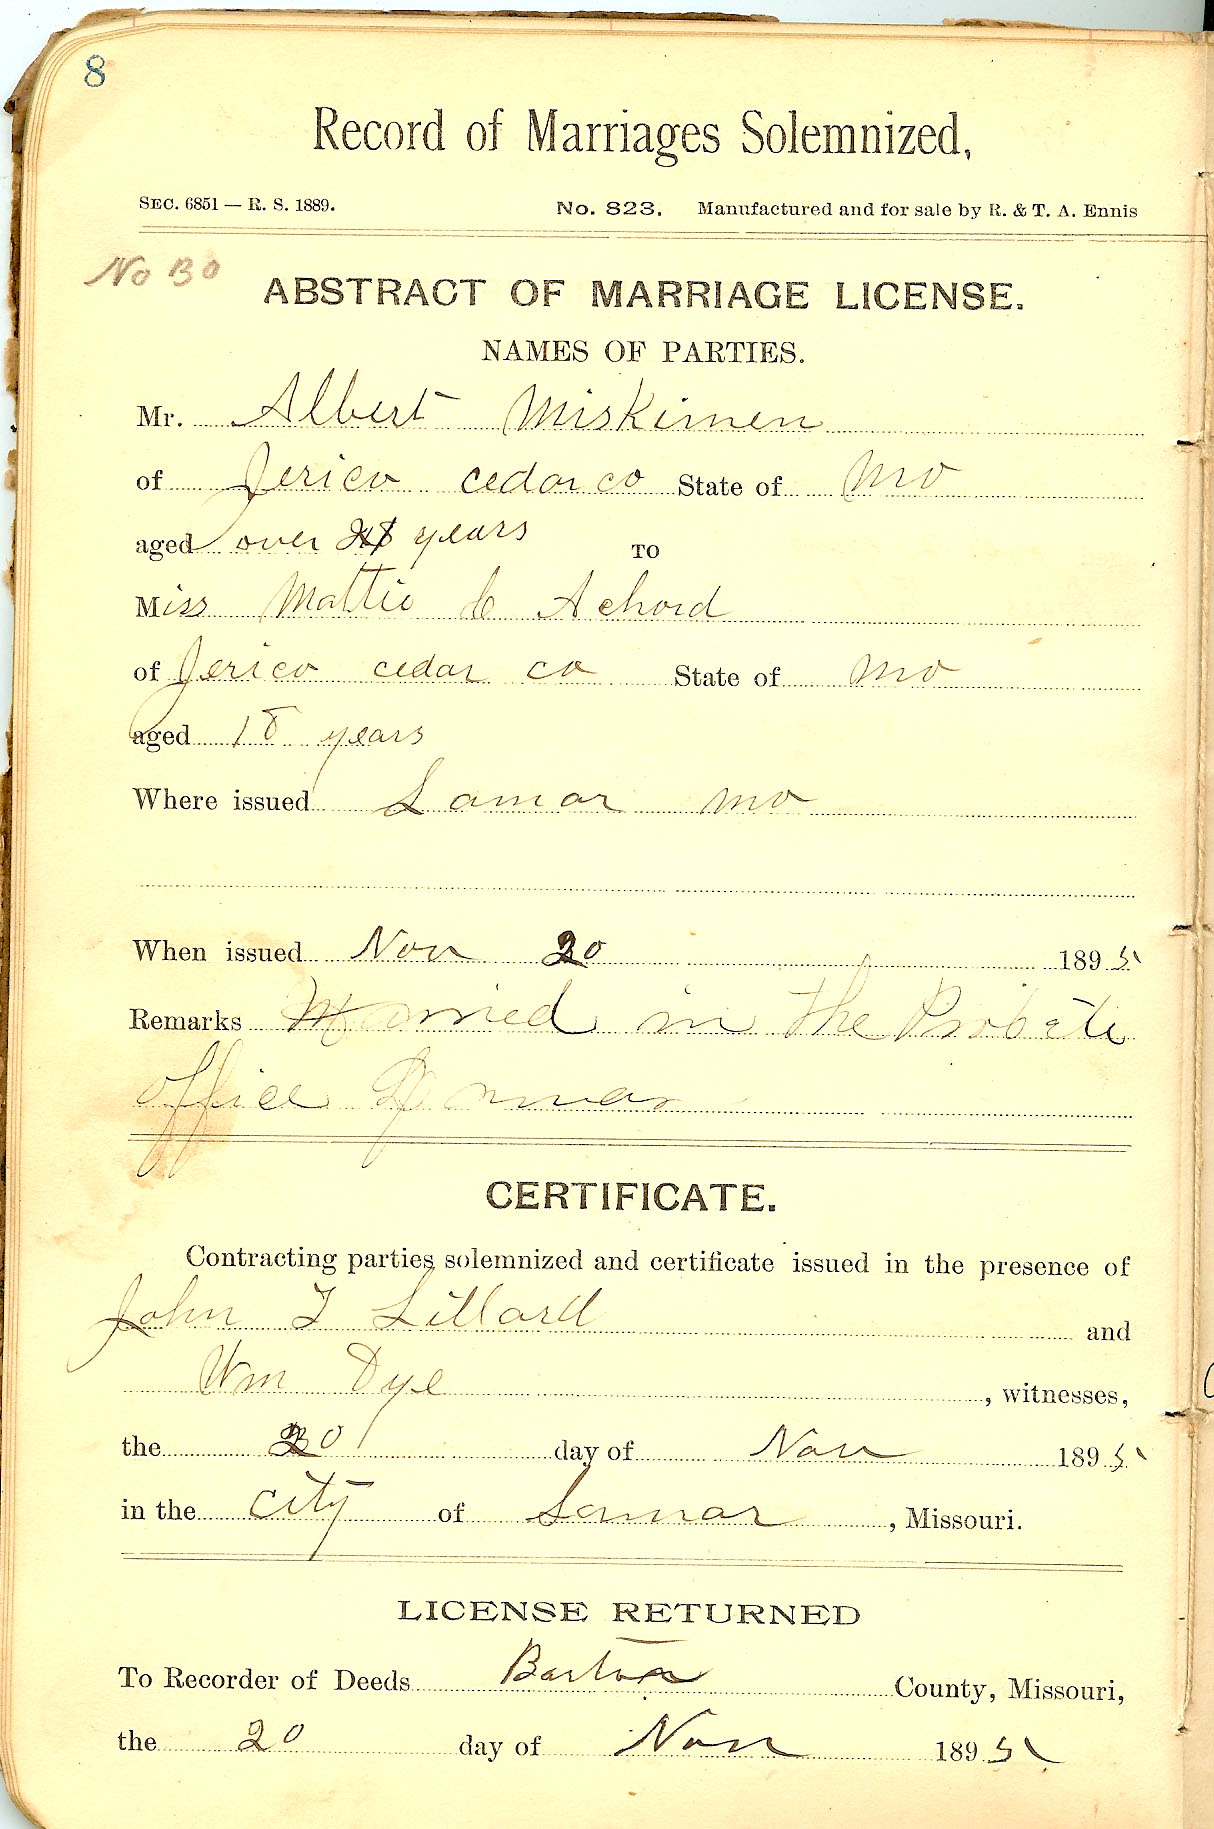 8
Record of Marriages Solemnized,
SEC. 6851 — R. S. 1889. No. 823. Manufactured and for sale by R. & T. A. Ennis
No 30
ABSTRACT OF MARRIAGE LICENSE.
NAMES OF PARTIES.
Mr. Albert Miskimen
of Jerico cedar co State of Mo
aged over years
TO
Miss Mattie C Achord
of Jerico cedar co State of Mo
aged 18 years
Where issued Lamar Mo
When issued Nov 20 1895
Remarks Married in the Probate
office Lamar
CERTIFICATE.
Contracting parties solemnized and certificate issued in the presence of
John T Lillard and
Wm Dye , witnesses,
the 20 day of Nov 1895
in the city of Lamar , Missouri.
LICENSE RETURNED
To Recorder of Deeds Barton County, Missouri,
the 20 day of Nov 1895